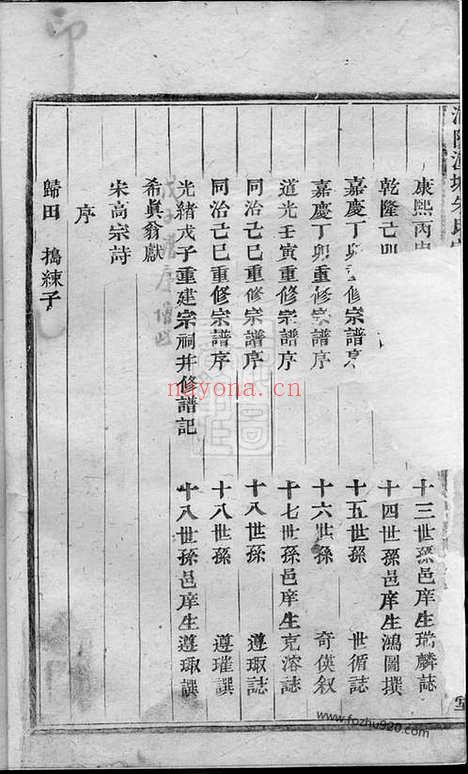 康熙丙 十三世孫邑庠生瑞麟誌
乾隆己卯 十四世孫邑庠生鴻圖撰
嘉慶丁卯重修宗譜序 十五世孫 世循誌
嘉慶丁卯重修宗譜序 十六世孫 奇俠叙
道光壬寅重修宗譜序 十七世孫邑庠生克濬誌
同治己巳重修宗譜序 十八世孫 遵琡誌
同治己巳重修宗譜序 十八世孫 遵璀譔
光緒戊子重建宗祠并修譜記 十八世孫邑庠生遵琡譔
希眞翁獻
宋高宗詩
序
歸田 搗練子
印
nayona.cn
www.fopzhu920.com